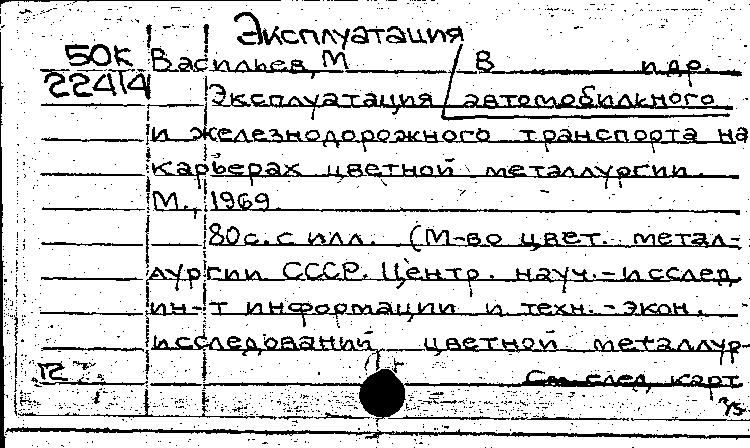 Эксплуатация
50К Васильев, М В и др.
22414
Эксплуатация автомобильного
и железнодорожного транспорта на
карьерах цветной металлургии.
М., 1969.
80 с. с илл. (М-во цвет. метал-
лургии СССР. Центр. науч.-исслед.
ин-т информации и техн.-экон.
исследований цветной металлур-
См след. карт